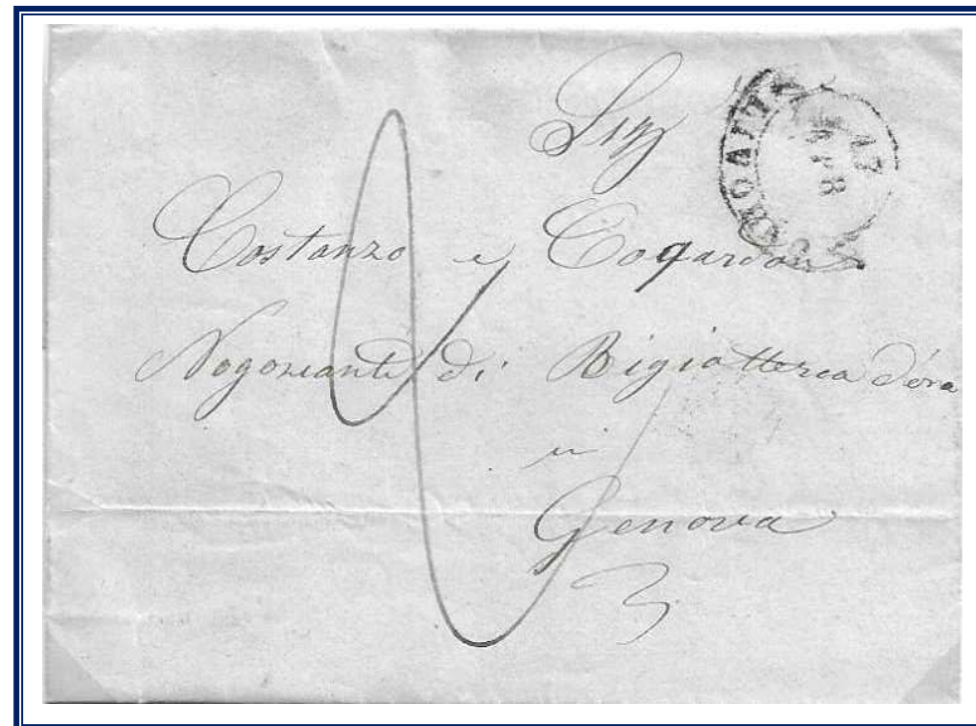 Sigg
Costanzo e Cogardon
Nogozianti di Bigiotteria d'oro
in
Genova
17
APR